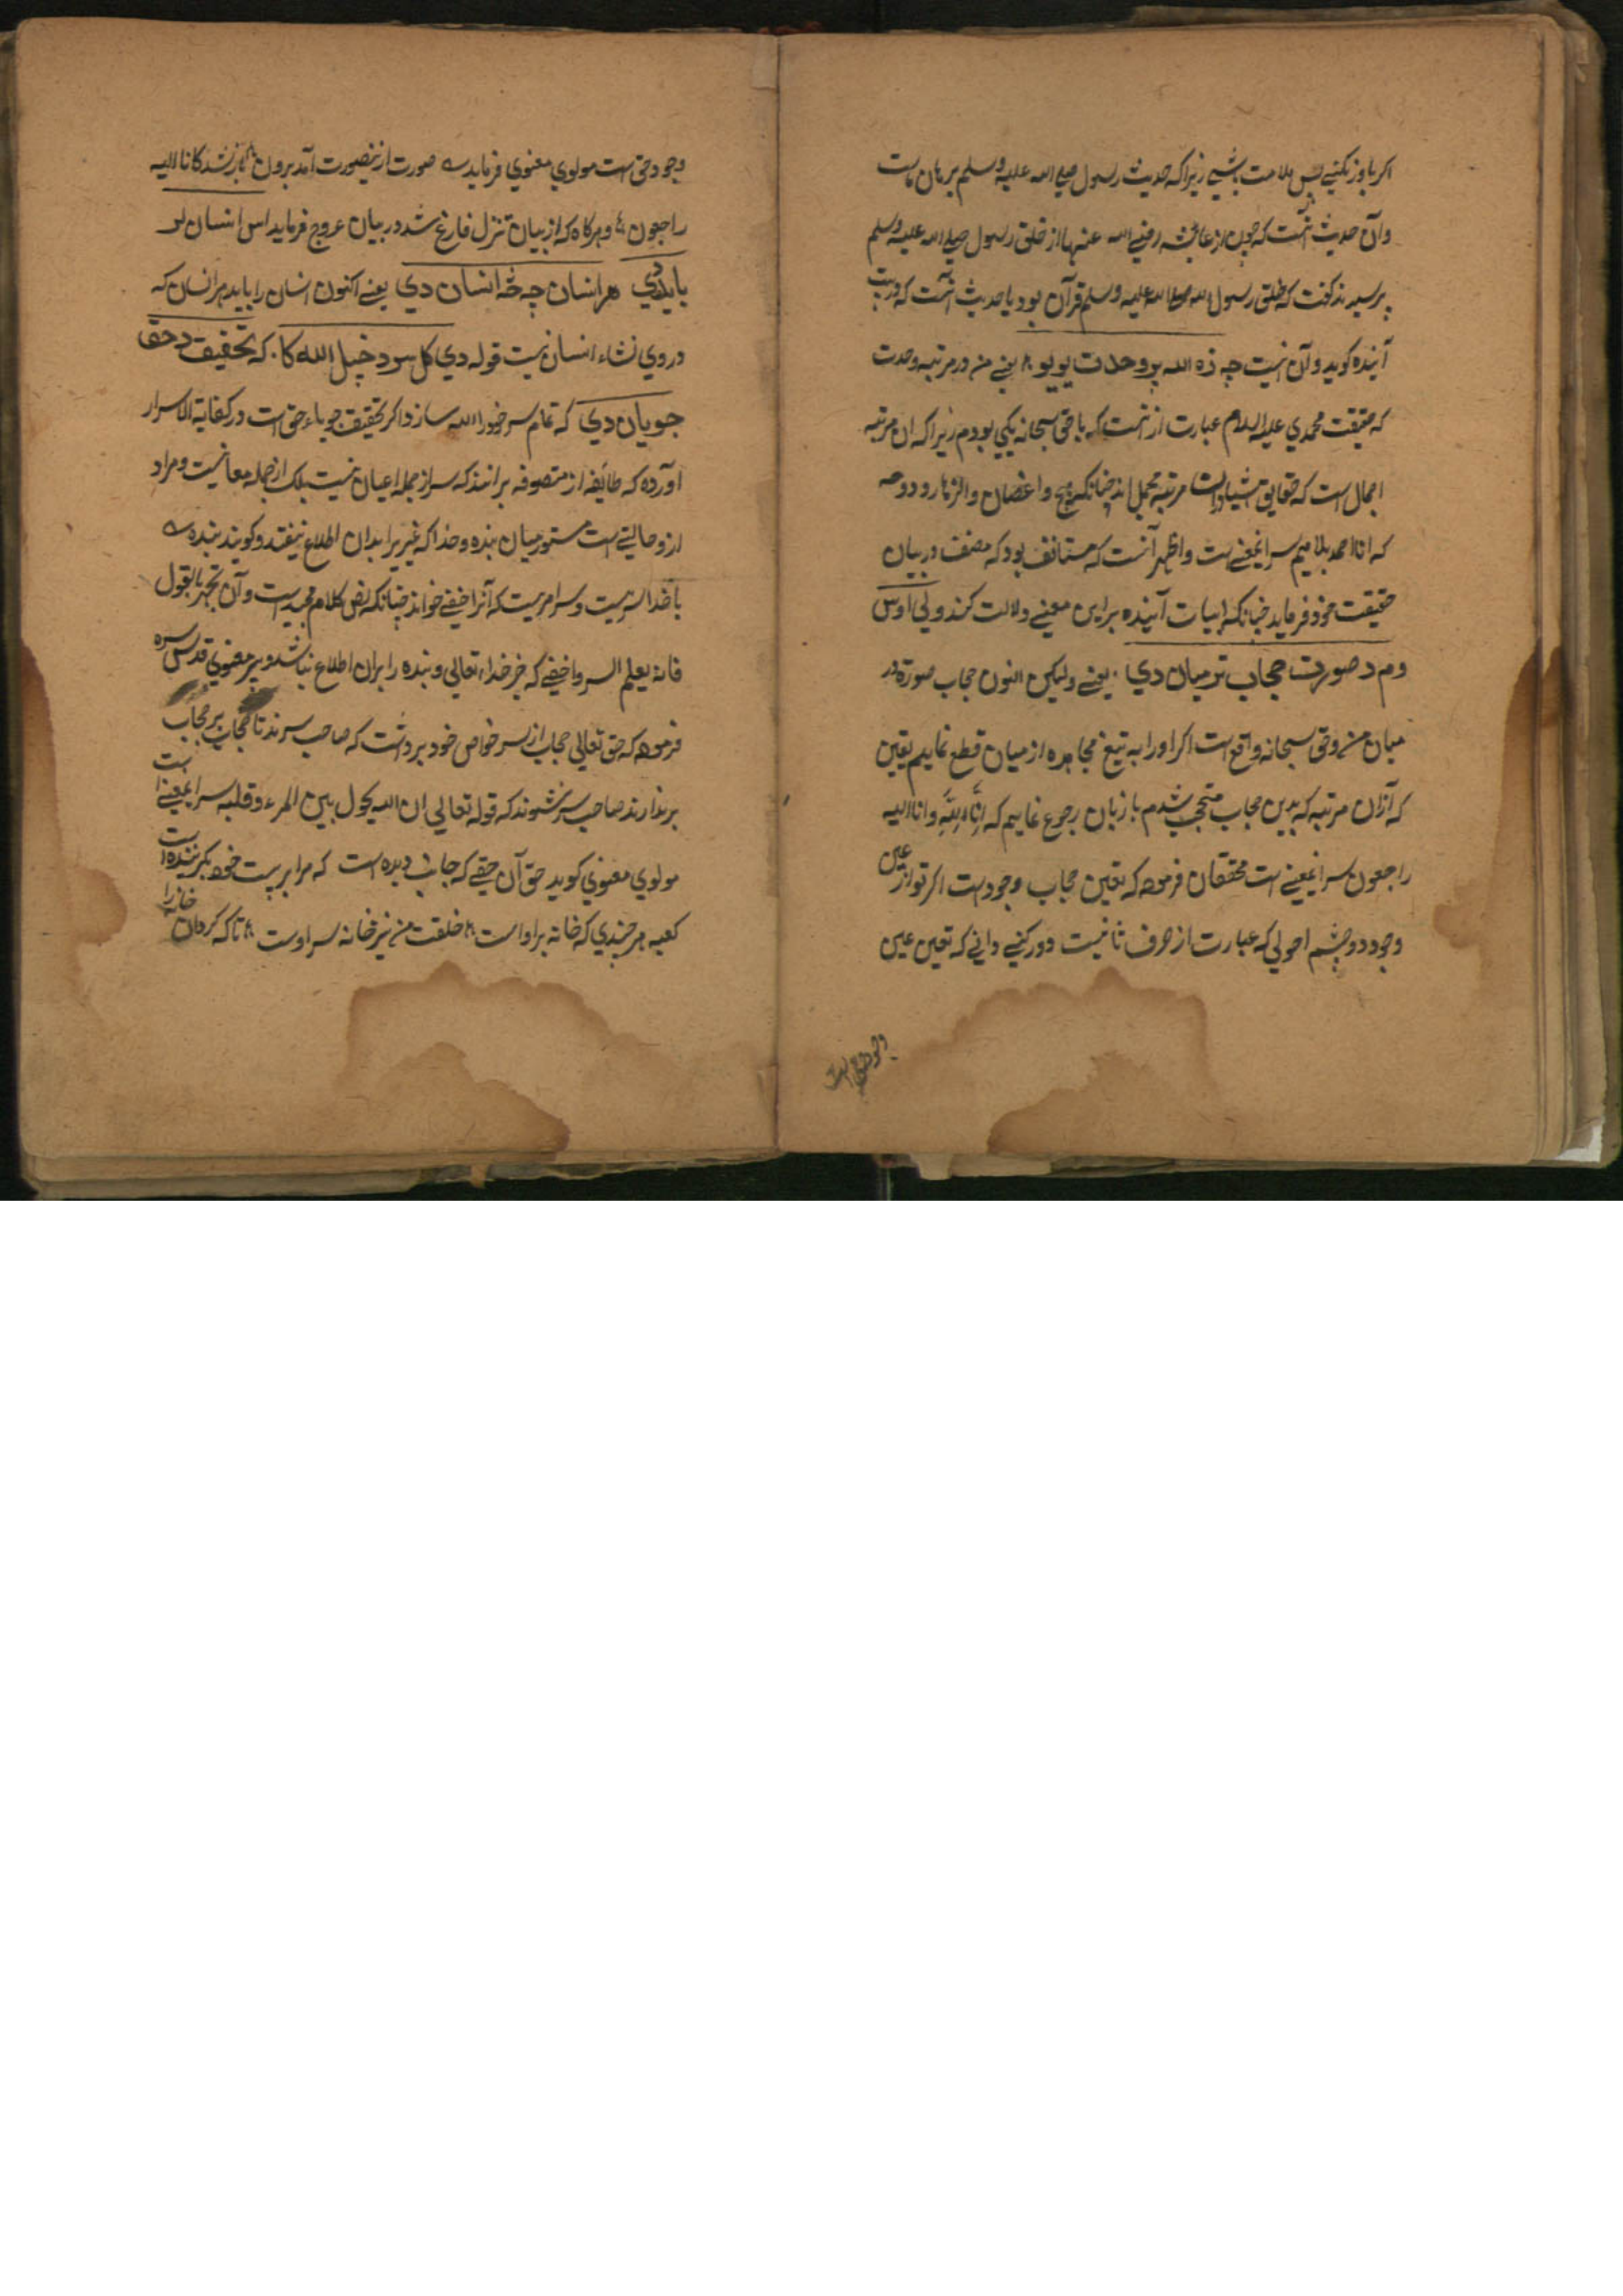 اکر باور نکنی پس ملامت باشی زیراکه حدیث رسول صلی الله علیه وسلم برهان ماست
وآن حدیث آنست که چون از عائشه رضی الله عنها از خلق رسول صلی الله علیه وسلم
پرسیدند کفت که خلق رسول الله صلی الله علیه وسلم قرآن بود یا حدیث آنست که در بیت
آینده کوید وآن اینست چه زه الله پر وحدت یو یو م یعنی من در مرتبه وحدت
که حقیقت محمدی علیه السلام عبارت از آنست که با حق سبحانه یکی بودم زیراکه آن مرتبه
اجمال است که حقایق اشیا در آن مرتبه مجمل اند چنانکه واغصان
که انا احمد بلا میم سر اینمعنی است واظهر آنست که مستانف بود که مصنف در بیان
حقیقت خود فرماید چنانکه ابیات آینده براین معنی دلالت کند ولی اوس
وم د صورت حجاب تر میان دی . یعنی ولیکن اکنون حجاب صورة در
میان من وحق سبحانه واقع است اکر اورا به تیغ مجاهده از میان قطع نمایم یقین
که آزان مرتبه که بدین حجاب متحجب شدم باز بان رجوع نمایم که انا لله وانا الیه
راجعون سر اینمعنی است محققان فرموده که تعین حجاب وجودست اکر تو از عین
وجود دو چشم احولی که عبارت از حرف ثانیست دور کنی دانی که تعین عین
وجود حق است
وجود حق است مولوی معنوی فرماید ــه صورت از بیصورت آمد برون م باز شد کانا الیه
راجعون م وهرکاه که از بیان تنزل فارغ شد در بیان عروج فرماید اس انسان لر
باید دی هر انسان چه څه انسان دی یعنی اکنون انسان را باید هر انسان که
در وی نشاء انسانیست قوله دی کل سر د خپل الله کا . که تحقیق د حق
جویان دی که تمام سر خود را الله سازد اکر بتحقیق جویاء حق است در کفایة الاسرار
آورده که طائفه از متصوفه برانند که سر از جمله اعیان نیست بلک از جمله معانیست ومراد
ازو حالتی است مستور میان بنده وخدا که غیریرا بدان اطلاع نیفتد وکویند بنده ــه
با خدا سریست وسر سریست که آنرا خفی خوانند چنانکه نص کلام مجیدست وان تجهر بالقول
فانه یعلم السر واخفی که جز خداء تعالی وبنده را بران اطلاع نباشد وپیر معنوی قدس سره
فرموده که حق تعالی حجاب از سر خواص خود برداشت که صاحب سرند تا حجاب بر حجاب
برندارند صاحب سر نشوند که قوله تعالی ان الله یحول بین المرء وقلبه سر اینمعنی است
مولوی معنوی کوید حق آن حقی که جانت دیده است که مرا بر بیت خود بکزیده است
کعبه هر چندی که خانه بر اوست م خلقت من نیز خانه سر اوست م تاکه کردان خانه را